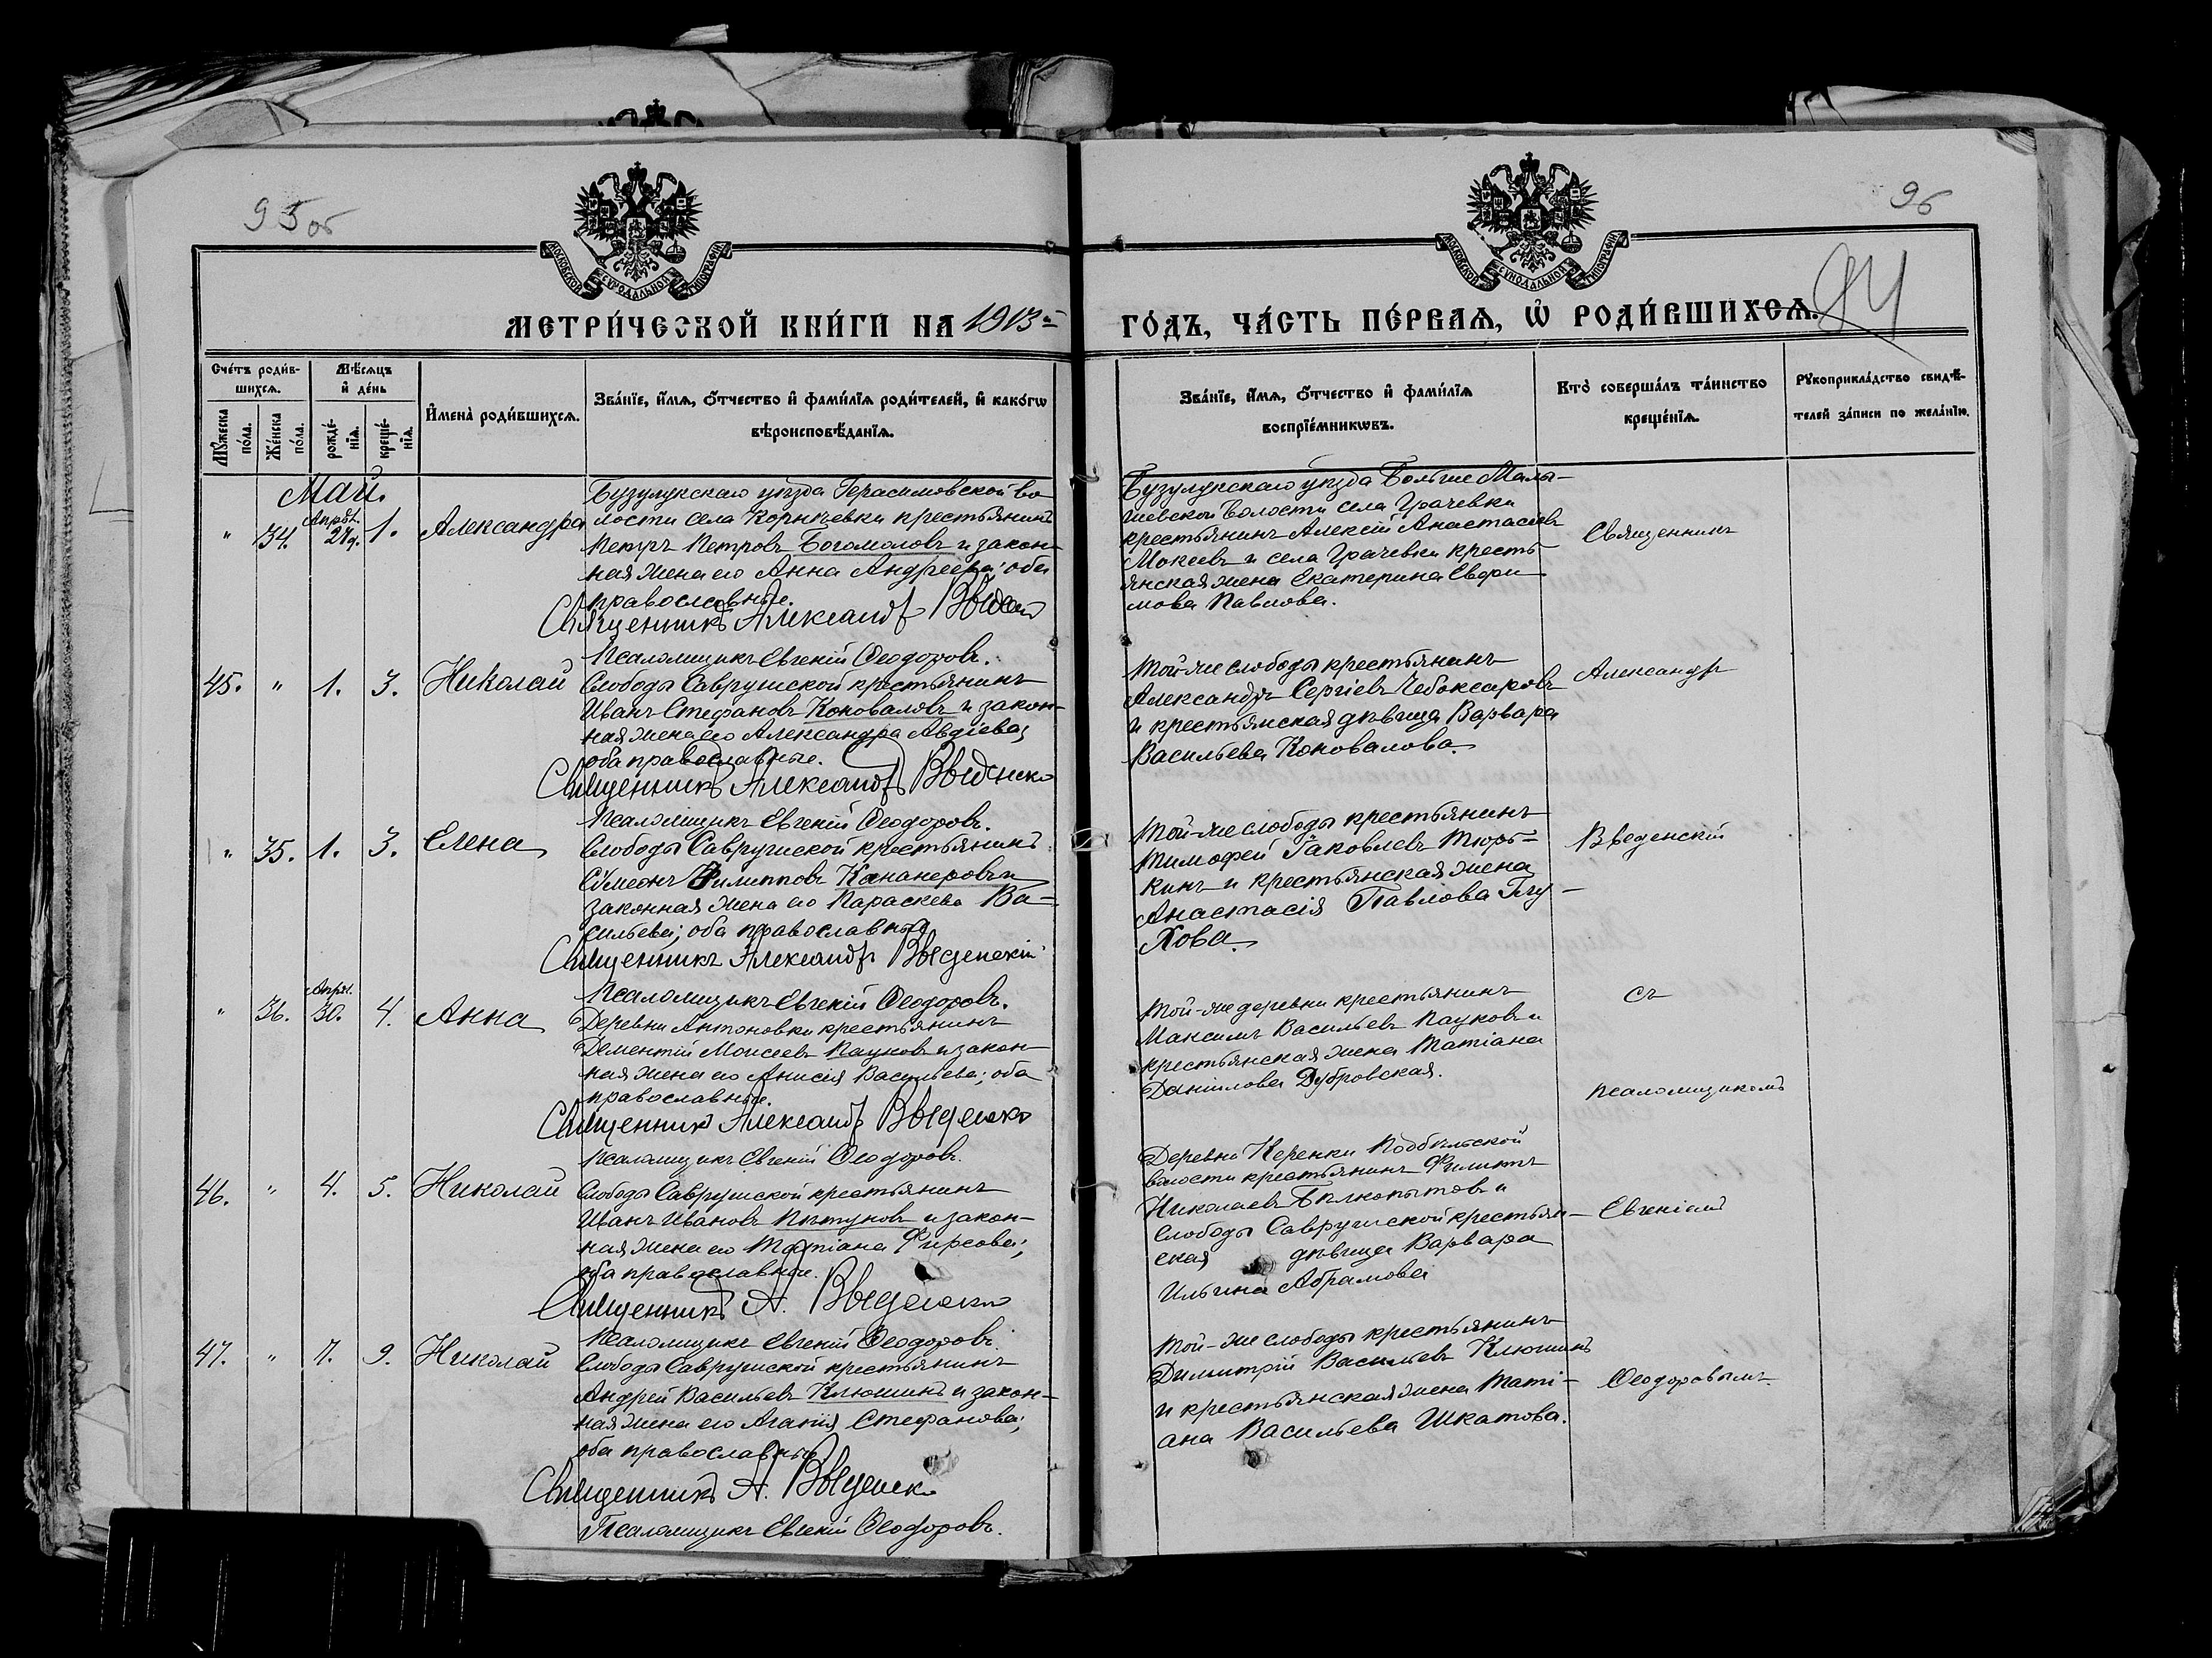 95 об
96
94
МОСКОВСКОЙ СѴНОДАЛЬНОЙ ТИПОГРАФІИ
МОСКОВСКОЙ СѴНОДАЛЬНОЙ ТИПОГРАФІИ
МЕТРИ́ЧЕСКОЙ КНИ́ГИ НА 1913-й
ГО́ДЪ, ЧА́СТЬ ПЕ́РВАЯ, Ѡ҆ РОДИ́ВШИХСЯ.
Сче́тъ роди́в-
шихся.
Мѣ́сяцъ
и҆ де́нь
Мꙋ́жеска
по́ла.
Же́нска
по́ла.
рожде́-
нїѧ.
креще́-
нїѧ.
И҆мена̀ роди́вшихся.
Зва́нїе, и҆́мѧ, ѻ҆́тчество и҆ фами́лїѧ роди́телей, и҆ како́гѡ
вѣроисповѣ́данїѧ.
Зва́нїе, и҆́мѧ, ѻ҆́тчество и҆ фами́лїѧ
воспрїе́мникѡвъ.
Кто̀ соверша́лъ та́инство
креще́нїѧ.
Рꙋкоприкла́дство свидѣ́-
телей за́писи по жела́нїю.
Май.
" 34. Апрѣл. 29. 1. Александра
Бузулукскаго уѣзда Герасимовской во-
лости села Корнѣевки крестьянинъ
Петръ Петровъ Богомоловъ и закон-
ная жена его Анна Андреева; оба
православные.
Священникъ Александр Введен
Псаломщикъ Евгеній Ѳеодоровъ.
Бузулукскаго уѣзда Больше Малы-
шевской волости села Грачевки
крестьянинъ Алексій Анастасіевъ
Мокеевъ и села Грачевки кресть-
янская жена Екатерина Евфи-
мова Павлова.
Священникъ
45. " 1. 3. Николай
Слободы Саврушской крестьянинъ
Иванъ Стефановъ Коноваловъ и закон-
ная жена его Александра Авдіева;
оба православные.
Священникъ Александръ Введенско
Псаломщикъ Евгеній Ѳеодоровъ.
Той-же слободы крестьянинъ
Александръ Сергіевъ Чебоксаровъ
и крестьянская дѣвица Варвара
Васильева Коновалова.
Александръ
" 35. 1. 3. Елена
Слободы Саврушской крестьянинъ
Сѵмеонъ Филипповъ Кананеровъ и
законная жена его Параскева Ва-
сильева; оба православные
Священникъ Александръ Введенскій
Псаломщикъ Евгеній Ѳеодоровъ.
Той-же слободы крестьянинъ
Тимофей Іаковлевъ Тюрь-
кинъ и крестьянская жена
Анастасія Павлова Глу-
хова.
Введенскій
" 36. Апрѣл. 30. 4. Анна
Деревни Антоновки крестьянинъ
Дементій Моисеевъ Пауковъ и закон-
ная жена его Анисія Васильева; оба
православные.
Священникъ Александръ Введенско
Псаломщикъ Евгеній Ѳеодоровъ.
Той-же деревни крестьянинъ
Максимъ Васильевъ Пауковъ и
крестьянская жена Татіана
Даніилова Дубровская.
съ
псаломщикомъ
46. " 4. 5. Николай
Слободы Саврушской крестьянинъ
Иванъ Ивановъ Пѣтуновъ и закон-
ная жена его Татіана Фирсова;
оба православные.
Священникъ А. Введенско
Псаломщикъ Евгеній Ѳеодоровъ.
Деревни Керенки Подбѣльской
волости крестьянинъ Филиппъ
Николаевъ Бѣлкопытовъ и
Слободы Саврушской крестьян-
ская дѣвица Варвара
Ильина Абрамова
Евгеніемъ
47. " 7. 9. Николай
Слободы Саврушской крестьянинъ
Андрей Васильевъ Клюшинъ и закон-
ная жена его Агапія Стефанова;
оба православные
Священникъ А. Введенско
Псаломщикъ Евгеній Ѳеодоровъ.
Той-же слободы крестьянинъ
Димитрій Васильевъ Клюшинъ
и крестьянская жена Таті-
ана Васильева Шкатова.
Ѳеодоровымъ.